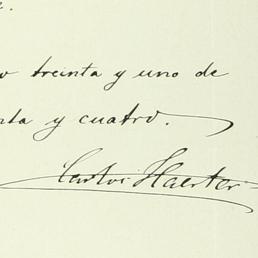 treinta y uno de
y cuatro.
Carlos Haerter